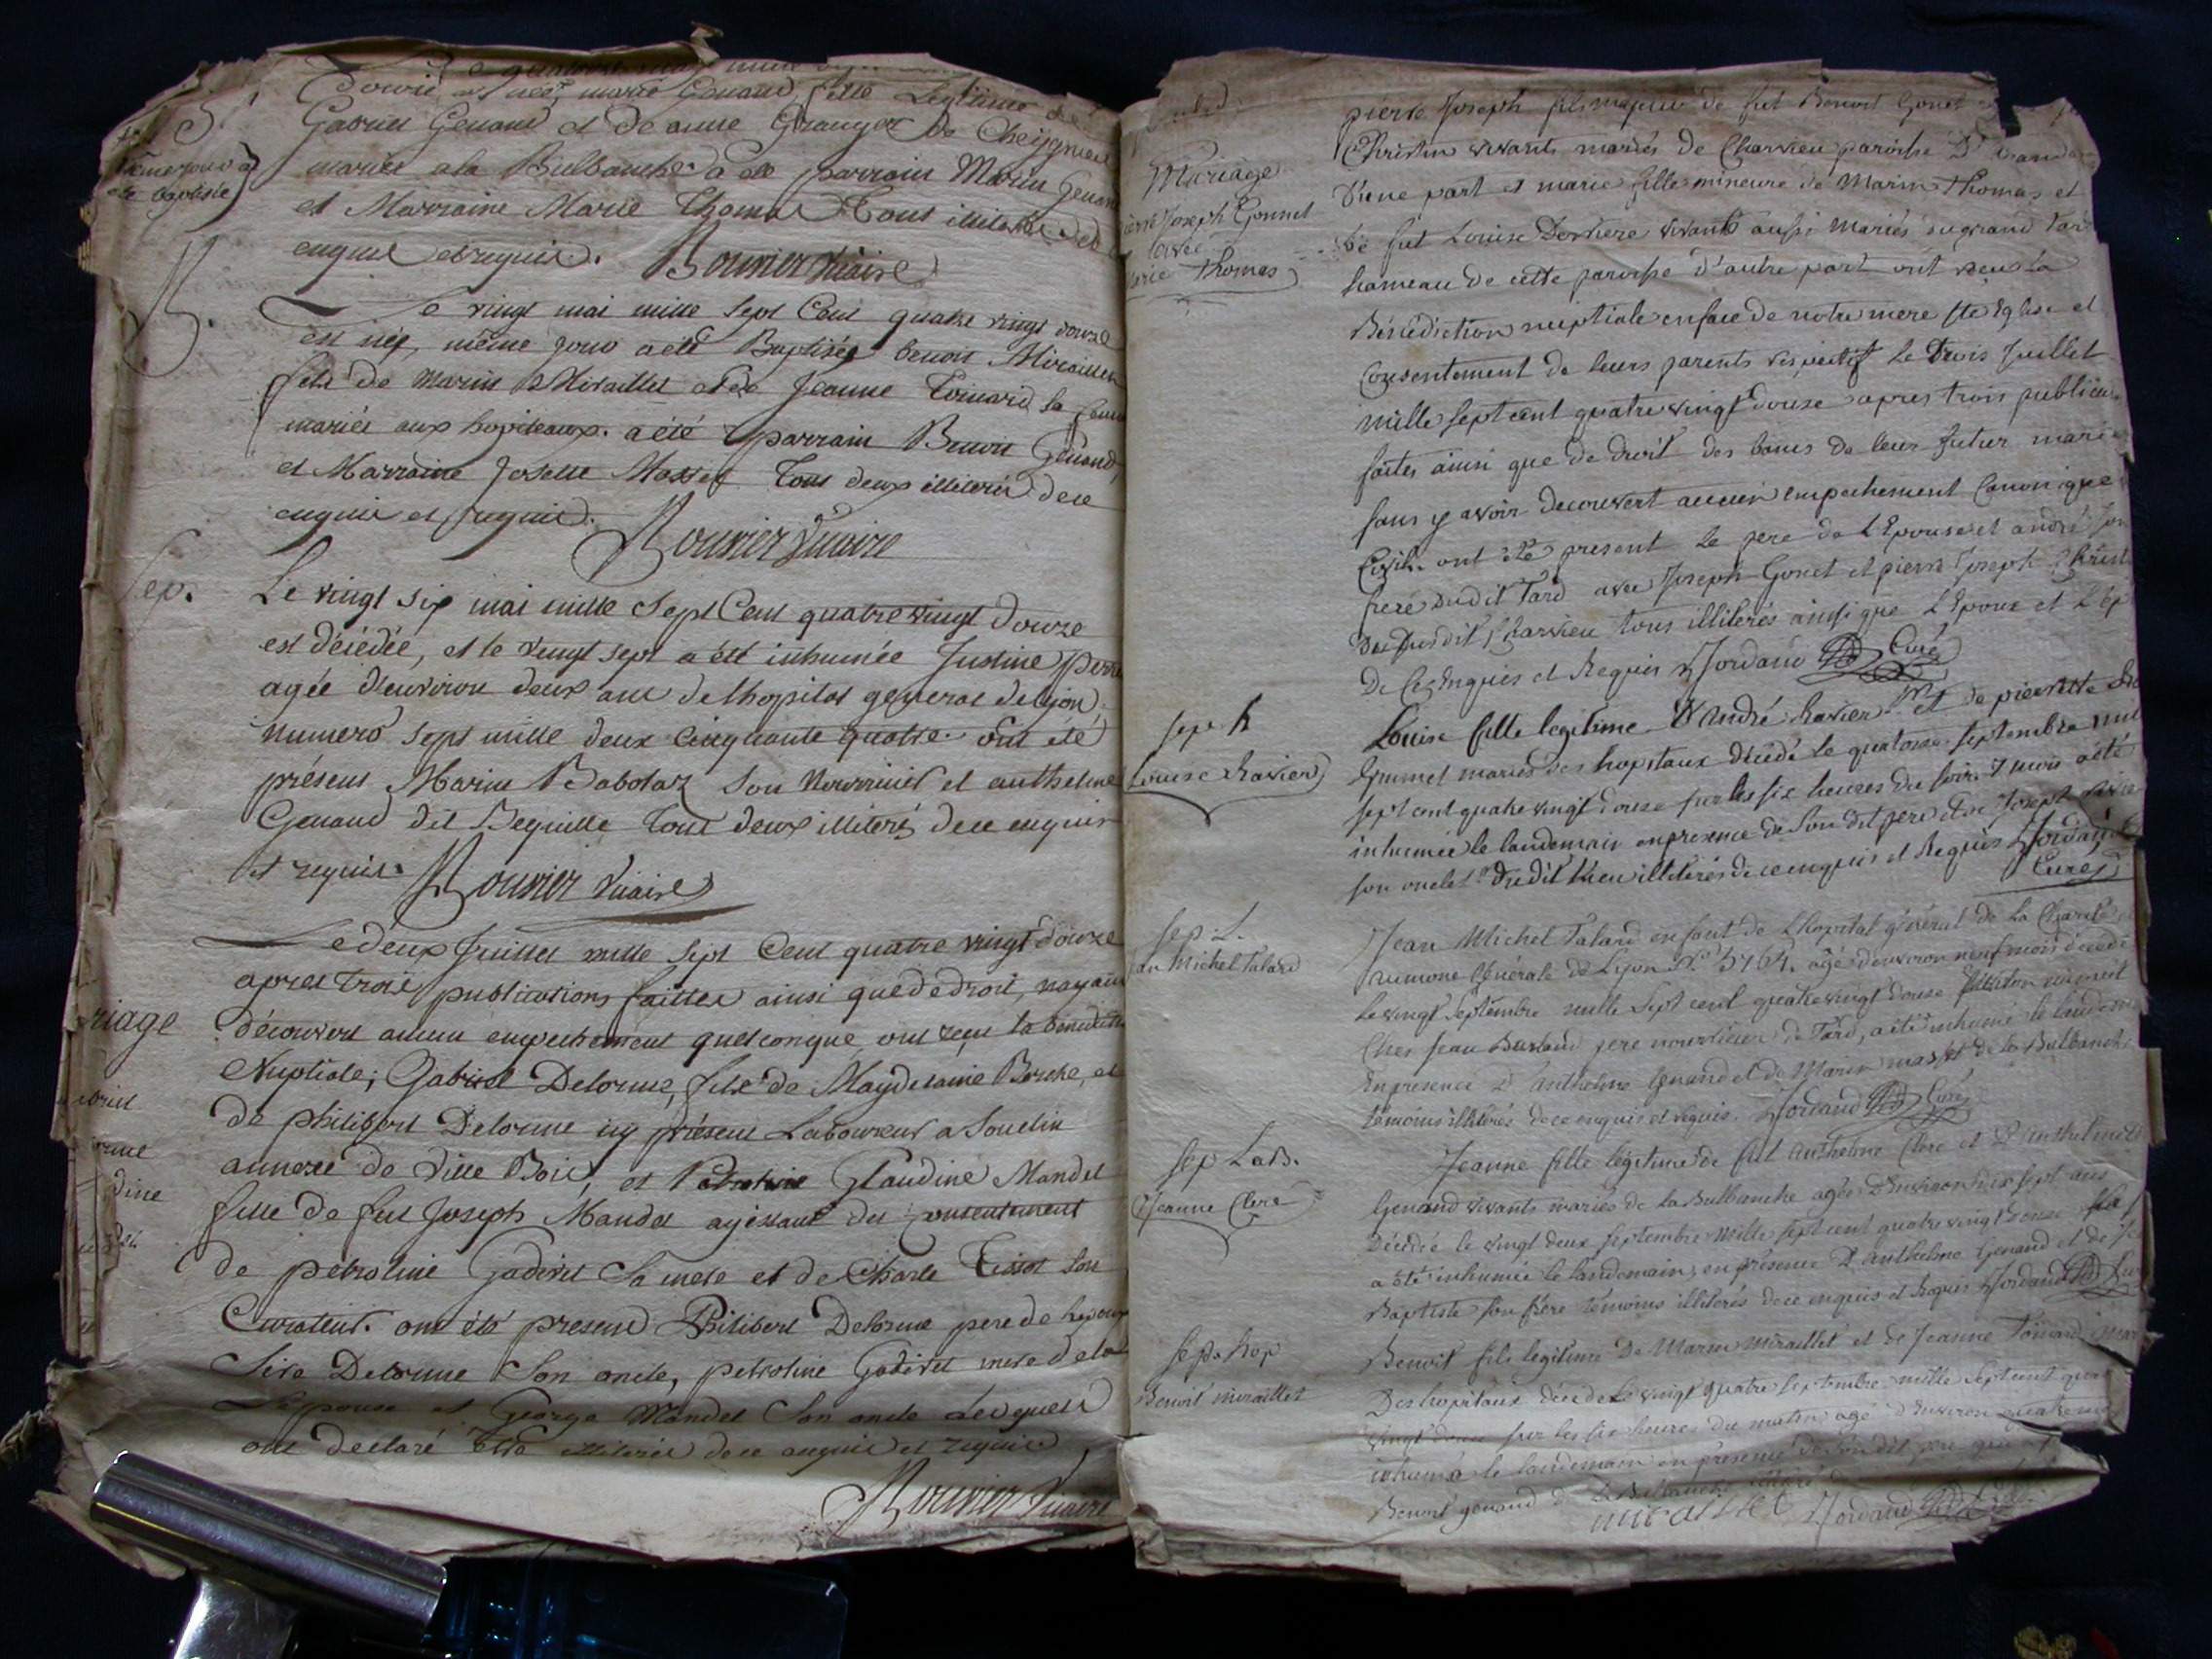 même jour a
été baptisée
douze est née, marie Genand, fille Légitime de
Gabriel Genand et de anne Granger de Cheignieu
mariés a la Bulbanche a été parrain Marin Genand
et Marraine Marie Thomas Tous illiterés de ce
enquis et requis. Rounier vicaire
B.
Le vingt mai mille sept Cent quatre vingt douze
est né, même jour a été Baptisée benoit Miraillet
fils de Marin Miraillet et de Jeanne Toinard sa femme
mariés aux hopiteaux. a été parrain Benoit Genand,
et Marraine Joselle Masset Tous deux illiterés de ce
enquis et requis. Rounier Vicaire
Sep.
Le vingt six mai mille Sept Cent quatre vingt Douze
est décédée, et le vingt sept a été inhumée Justine
agée d'environ deux ans de lhopital general de Lyon,
numero sept mille deux Cinquante quatre. ont été
présens Marin Babolaz son Nourricier et anthelme
Genand dit Bequille Tous deux illiterés de ce enquis
et requis. Rounier Vicaire
Le deux Juillet mille sept Cent quatre vingt douze
apres trois publications faittes ainsi que de droit, nayant
découvert aucun empechement quelconque, ont reçu la bénédiction
Nuptiale; Gabriel Delorme, fils de Magdelaine Berche, et
de philibert Delorme icy présent Laboureur a Soudin
annexe de Ville Bois, et Claudine Mandet
fille de feu Joseph Mandet agissant du Consentement
de petroline Godivet Sa mere et de Charle Tissot son
Curateur. ont été presens Philibert Delorme pere de l'epoux
Delorme Son oncle, petroline Godivet mere de la
Lepouse et George Mandet Son oncle Lesquels
ont declaré être illiterés de ce enquis et requis
Rounier Vicaire
riage
Mariage
pierre Joseph Gonnet
avec
marie Thomas
pierre Joseph fils majeur de fut Benoit Gonet
Christin vivants mariés de Charvieu paroisse D'
D'une part et marie fille mineure de Marin Thomas et
de fut Louise Derriere vivants aussi mariés au grand Tard
hameau de cette paroisse d'autre part ont reçu la
Bénédiction nuptiale en face de notre mere Ste Eglise et
Consentement de leurs parents respectif le trois Juillet
mille sept cent quatre vingt douse apres trois publications
faites ainsi que de droit des bans de leur futur mariage
sans y avoir decouvert aucun empechement Canonique
Civil. ont été present le pere de L'Epouse et andré son
frere dudit Tard avec Joseph Gonet et pierre Joseph Christin
du susdit Charvieu tous illiterés ainsi que L'Epoux et L'Epouse
De Ce Enquis et Requis Jordand Curé
Sep. h
Louise Ravier
Louise fille legitime D'André Ravier et de pierrette
Gimmet mariés des hopitaux décédé le quatorse septembre mil
sept cent quatre vingt douse sur les six heures du soir 7 mois a été
inhumée le landemain en presence de Son dit pere et de Joseph Ravier
son oncle dudit Lieu illiterés de ce enquis et Requis Jordand
Curé
Sep. L.
Jean Michel Talard
Jean Michel Talard enfant de L'hopital général de La Charité
aumone Générale de Lyon No 5764. agé d'environ neuf mois décédé
le vingt septembre mille sept cent quatre vingt douse
Ches Jean Barland pere nourricier de Tard, a été inhumé le landemain
En presence D'Anthelme Genand et de Marin masset de la Bulbanche
témoins illiterés de ce enquis et requis. Jordand Curé
Sep La B.
Jeanne Clere
Jeanne fille légitime de fut Anthelme Clere et D'Anthelmette
Genand vivants mariés de la Bulbanche agée D'environ dix sept ans
Décédée le vingt deux septembre mille sept cent quatre vingt douse
a été inhumée le landemain, en présence D'Anthelme Genand et de
Baptiste son frère témoins illiterés de ce enquis et Requis Jordand
Sep. hop
Benoit miraillet
Benoit fils legitime De Marin Miraillet et de Jeanne Toinard
Des hopitaux décédé le vingt quatre septembre mille sept cent quatre
vingt douse sur les six heures du matin agé d'Environ quatre mois
inhumé le landemain en présence de Son dit pere
Benoit genand de la Bulbanche illiteré
miraillet Jordand